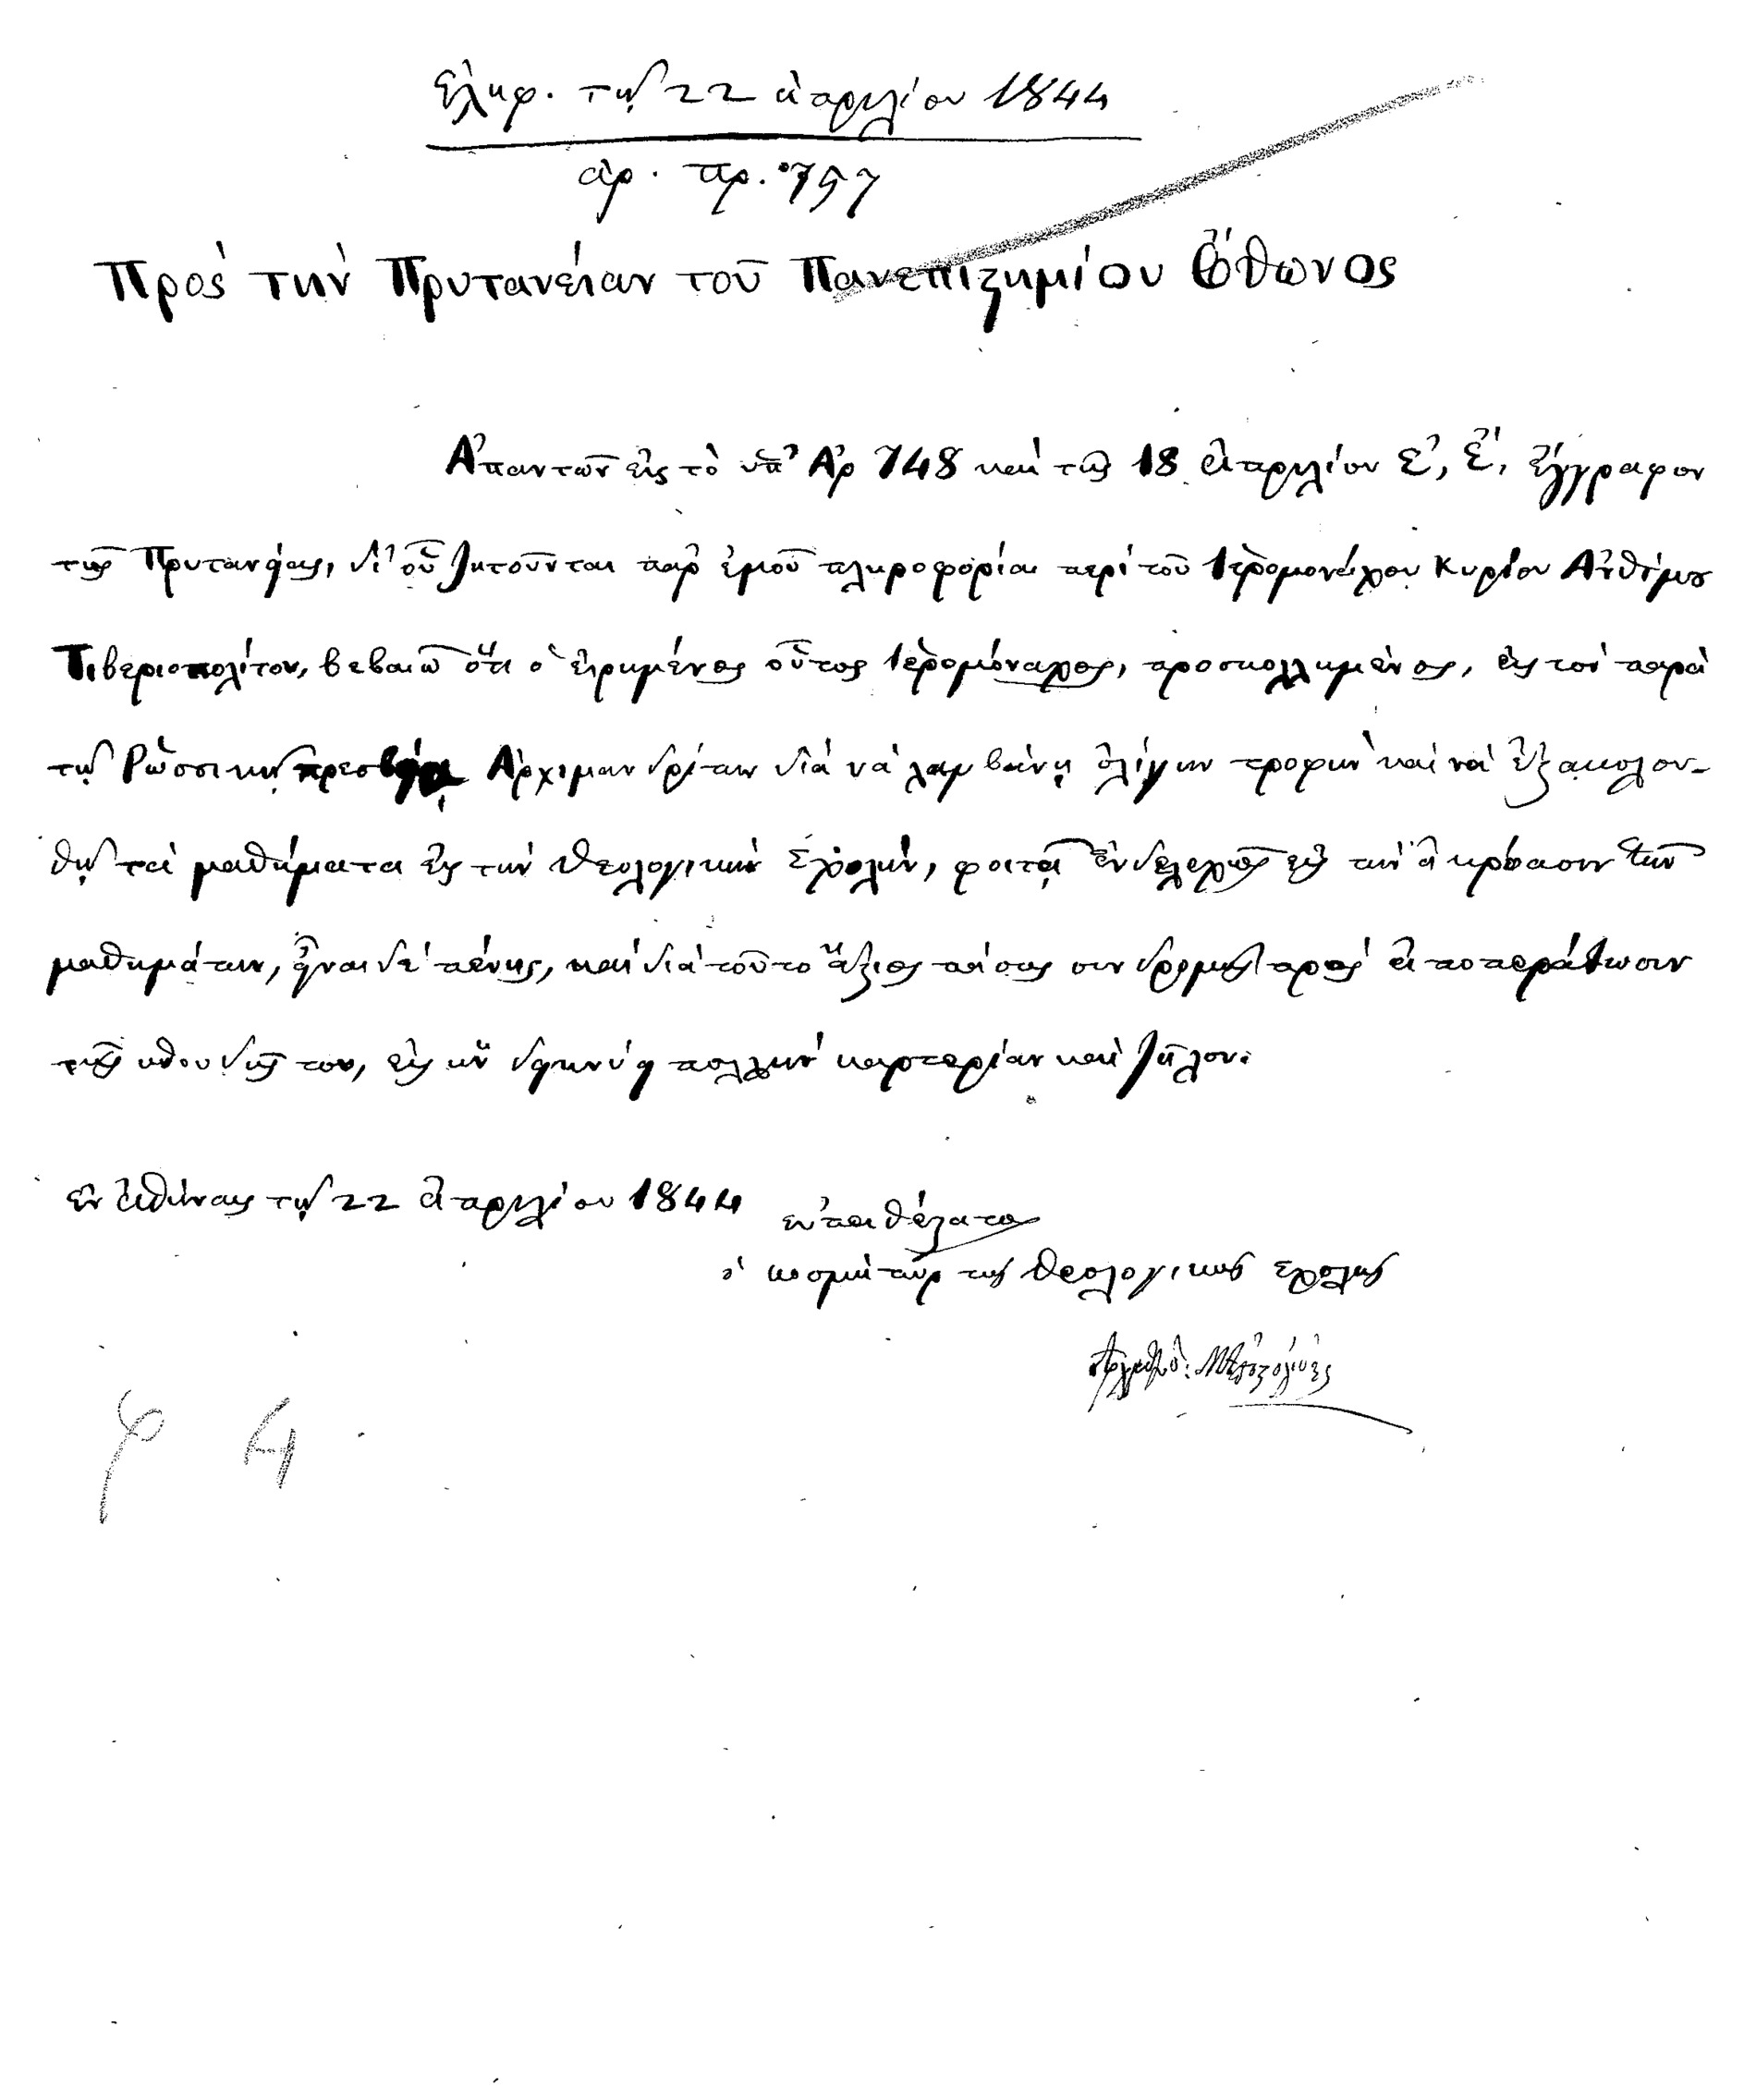 ἐλήφ. τῇ 22 ἀπριλίου 1844
ἀρ. πρ. 757
Πρὸς τὴν Πρυτανείαν τοῦ Πανεπιϛημίου Ὄθωνος
Ἀπαντῶν εἰς τὸ ὑπ' Ἀρ 748 καὶ τῆς 18 ἀπριλίου ἔ, ἔ, ἔγγραφον
τῆς Πρυτανείας, δι' οὗ ζητοῦνται παρ' ἐμοῦ πληροφορίαι περὶ τοῦ Ἱερομονάχου Κυρίου Ἀνθίμου
Τιβεριοπολίτου, βεβαιῶ ὅτι ὁ εἰρημένος οὗτος Ἱερομόναχος, προσκολλημένος, εἰς τὸν παρὰ
τῇ Ρωσσικῇ πρεσβείᾳ Ἀρχιμανδρίτην διὰ νὰ λαμβάνῃ ὀλίγην τροφὴν καὶ νὰ ἐξακολου-
θῇ τὰ μαθήματα εἰς τὴν Θεολογικὴν Σχολήν, φοιτᾷ ἐνδελεχῶς εἰς τὴν ἀκρόασιν τῶν
μαθημάτων, εἶναι δὲ πένης, καὶ διὰ τοῦτο ἄξιος πάσης συνδρομῆς πρὸς ἀποπεράτωσιν
τῆς σπουδῆς του, εἰς ἣν δεικνύει πολλὴν καρτερίαν καὶ ζῆλον.
ἐν Ἀθήναις τῇ 22 ἀπριλίου 1844
εὐπειθέστατος
ὁ κοσμήτωρ τῆς θεολογικῆς σχολῆς
φ 4